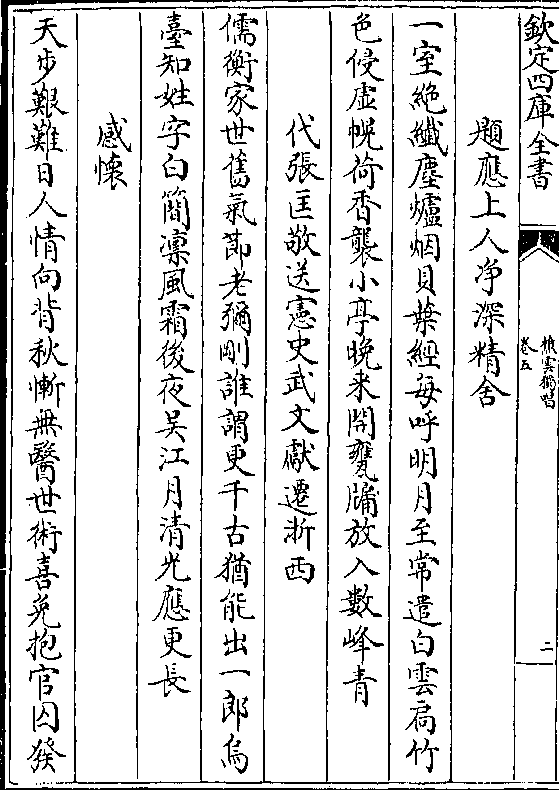 欽定四庫全書
樵雲獨唱
卷五
二
題應上人净深精舍
一室絶纖塵爐烟貝葉經每呼明月至常遣白雲扃竹
色侵虛幌荷香襲小亭晚来開甕牖放入數峰青
代張匡敬送憲史武文獻遷浙西
儒衡家世舊氣節老彌剛誰謂更千古猶能出一郎烏
臺知姓字白簡凛風霜後夜吳江月清光應更長
感懷
天步艱難日人情向背秋慚無醫世術喜免抱官囚發